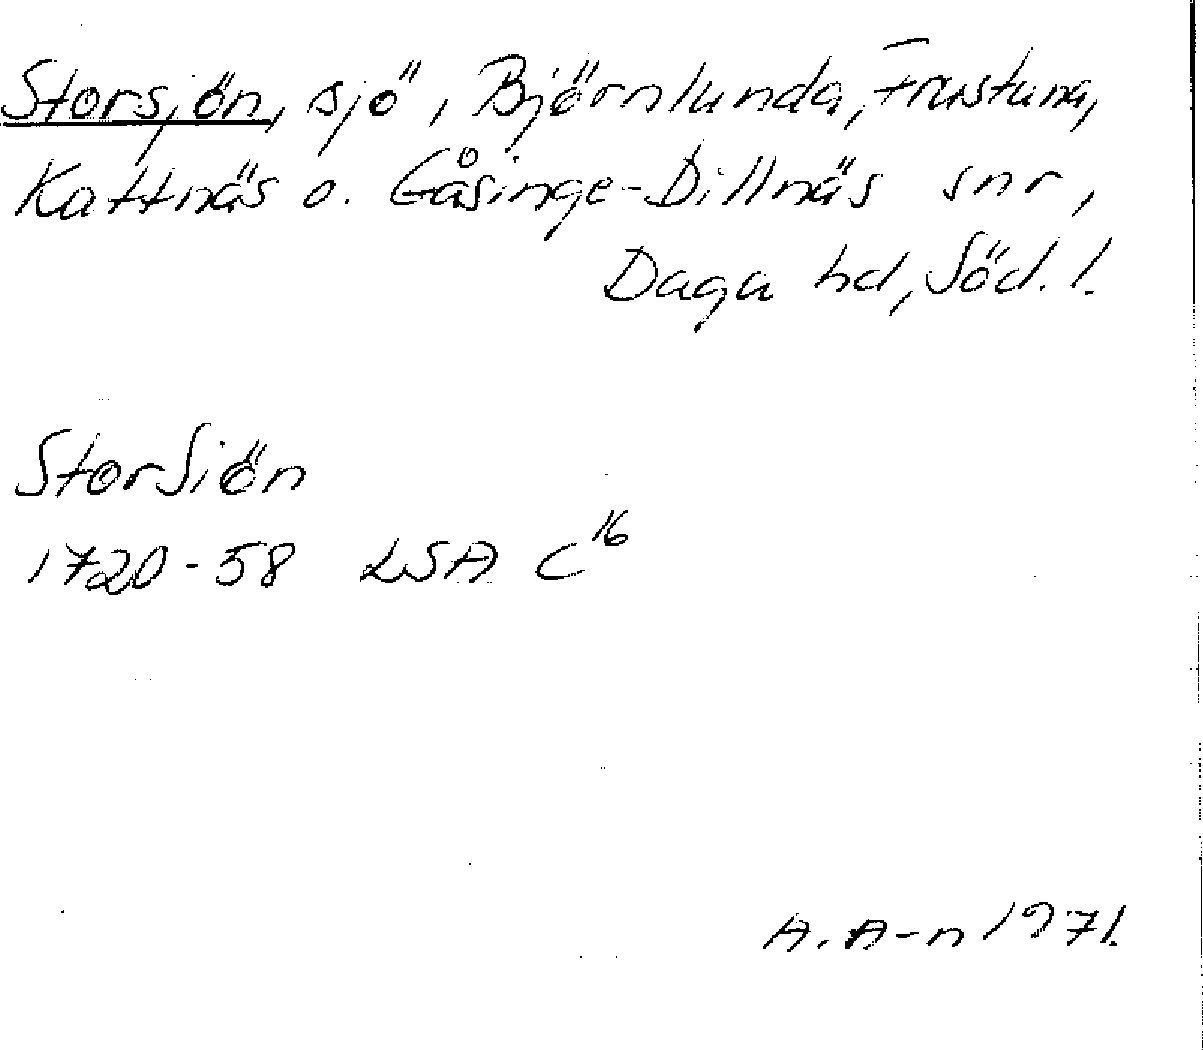 Storsjön, sjö, Björnlunda, Frustuna,
Kattnäs o. Gåsinge-Dillnäs snr,
Daga hd, Söd. l.
StorSiön
1720-58 LSA C¹⁶
A. A-n 1971.